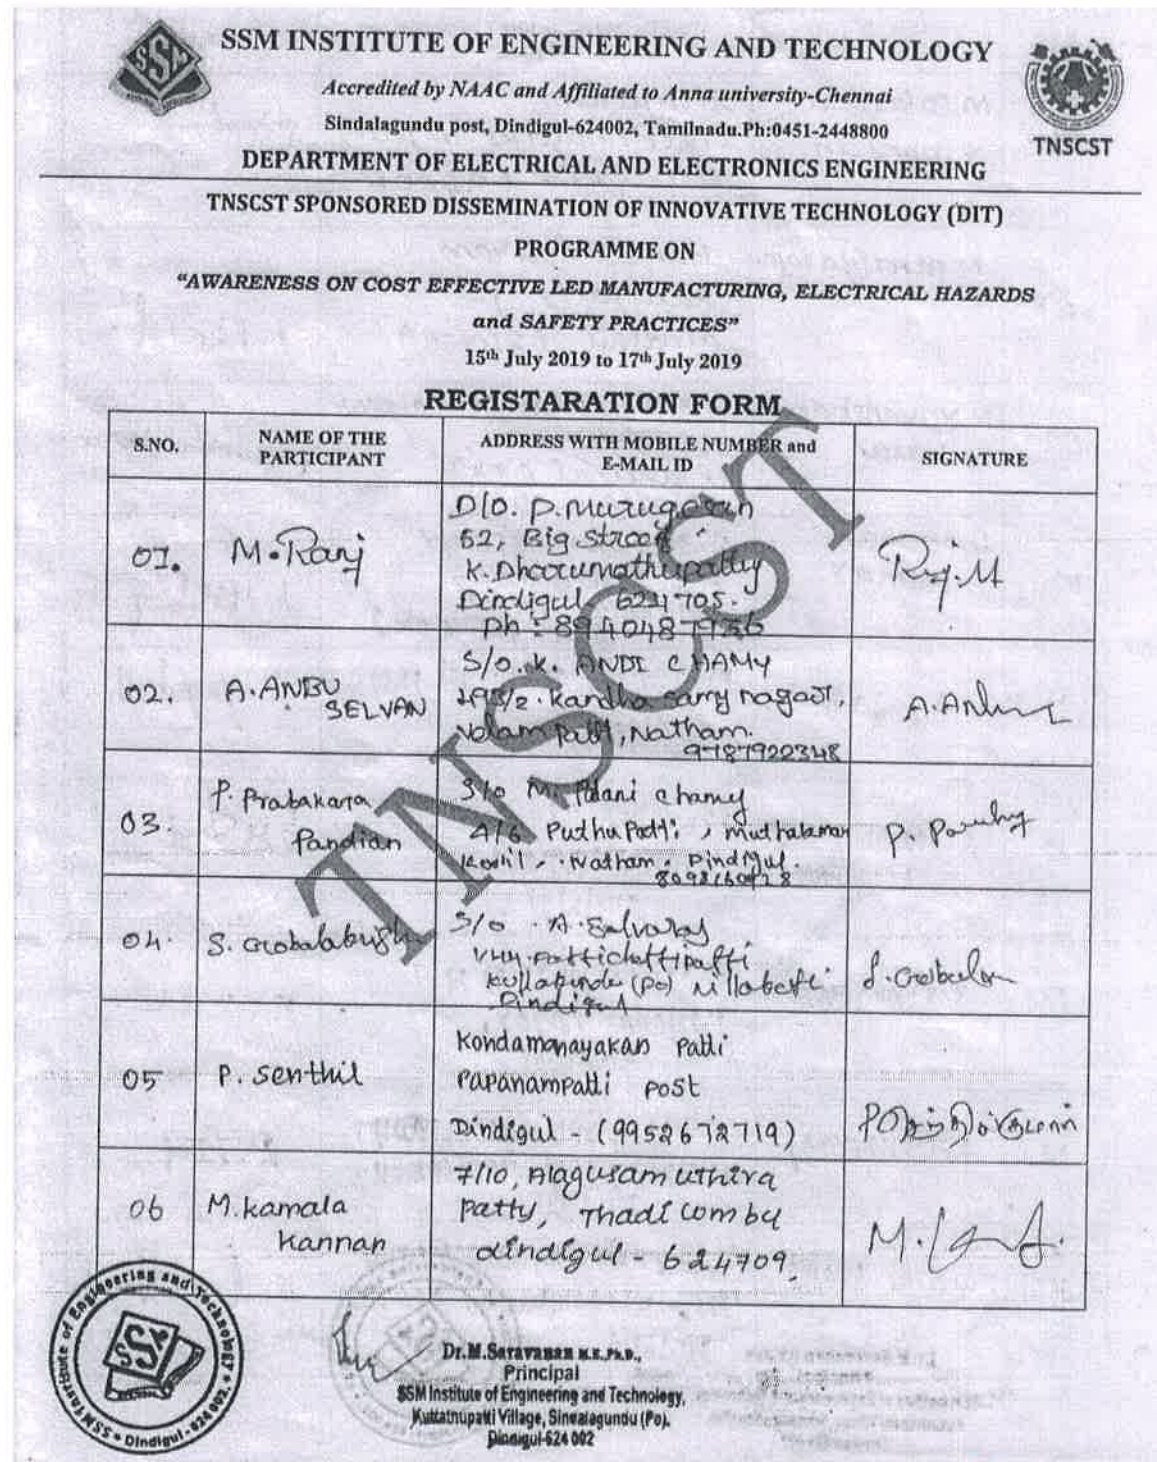 SSM
SSM INSTITUTE OF ENGINEERING AND TECHNOLOGY
Accredited by NAAC and Affiliated to Anna university-Chennai
Sindalagundu post, Dindigul-624002, Tamilnadu.Ph:0451-2448800
TNSCST
DEPARTMENT OF ELECTRICAL AND ELECTRONICS ENGINEERING
TNSCST SPONSORED DISSEMINATION OF INNOVATIVE TECHNOLOGY (DIT)
PROGRAMME ON
“AWARENESS ON COST EFFECTIVE LED MANUFACTURING, ELECTRICAL HAZARDS
and SAFETY PRACTICES”
15th July 2019 to 17th July 2019
REGISTARATION FORM
S.NO.
NAME OF THE
PARTICIPANT
ADDRESS WITH MOBILE NUMBER and
E-MAIL ID
SIGNATURE
01.
M.Ranj
D/O. P.Murugesan
52, Big Street
K.Dhoorumathupatty
Dindigul 624705.
Ph : 8940487956
02.
A.ANBU
SELVAN
S/o.K. ANDI CHAMY
Kandha samy nagar,
Velampatti, Natham.
9787922348
A.Anbu
03.
P. Prabakara
Pandian
S/o M. Palani chamy
4/6 Puthu Patti, muthalamman
Kovil, Natham, Dindigul.
P.
04.
S. Gobala
S/o A. Selvaraj
Pattichettipatti
(Po)
Dindigul
S. Gobalan
05
P. Senthil
Kondamanayakan Patti
Papanampatti post
Dindigul - (9952672719)
06
M.kamala
kannan
7/10, Alagusamuthira
Patty, Thadicombu
dindigul - 624709.
M.
TNSCST
SSM Institute of Engineering and Technology
Dindigul - 624 002.
SSM
Dr.M.Saravanan M.E.,Ph.D.,
Principal
SSM Institute of Engineering and Technology,
Kuttathupatti Village, Sindalagundu (Po),
Dindigul-624 002